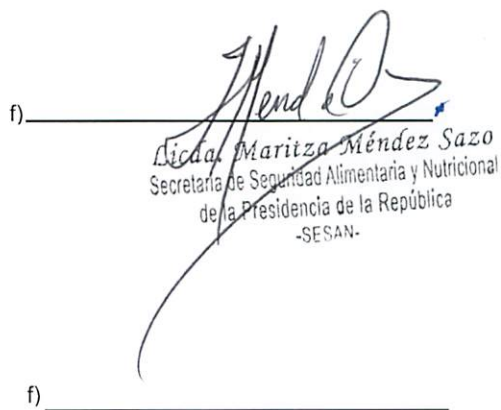 f)
Licda. Maritza Méndez Sazo
Secretaria de Seguridad Alimentaria y Nutricional
de la Presidencia de la República
-SESAN-
f)